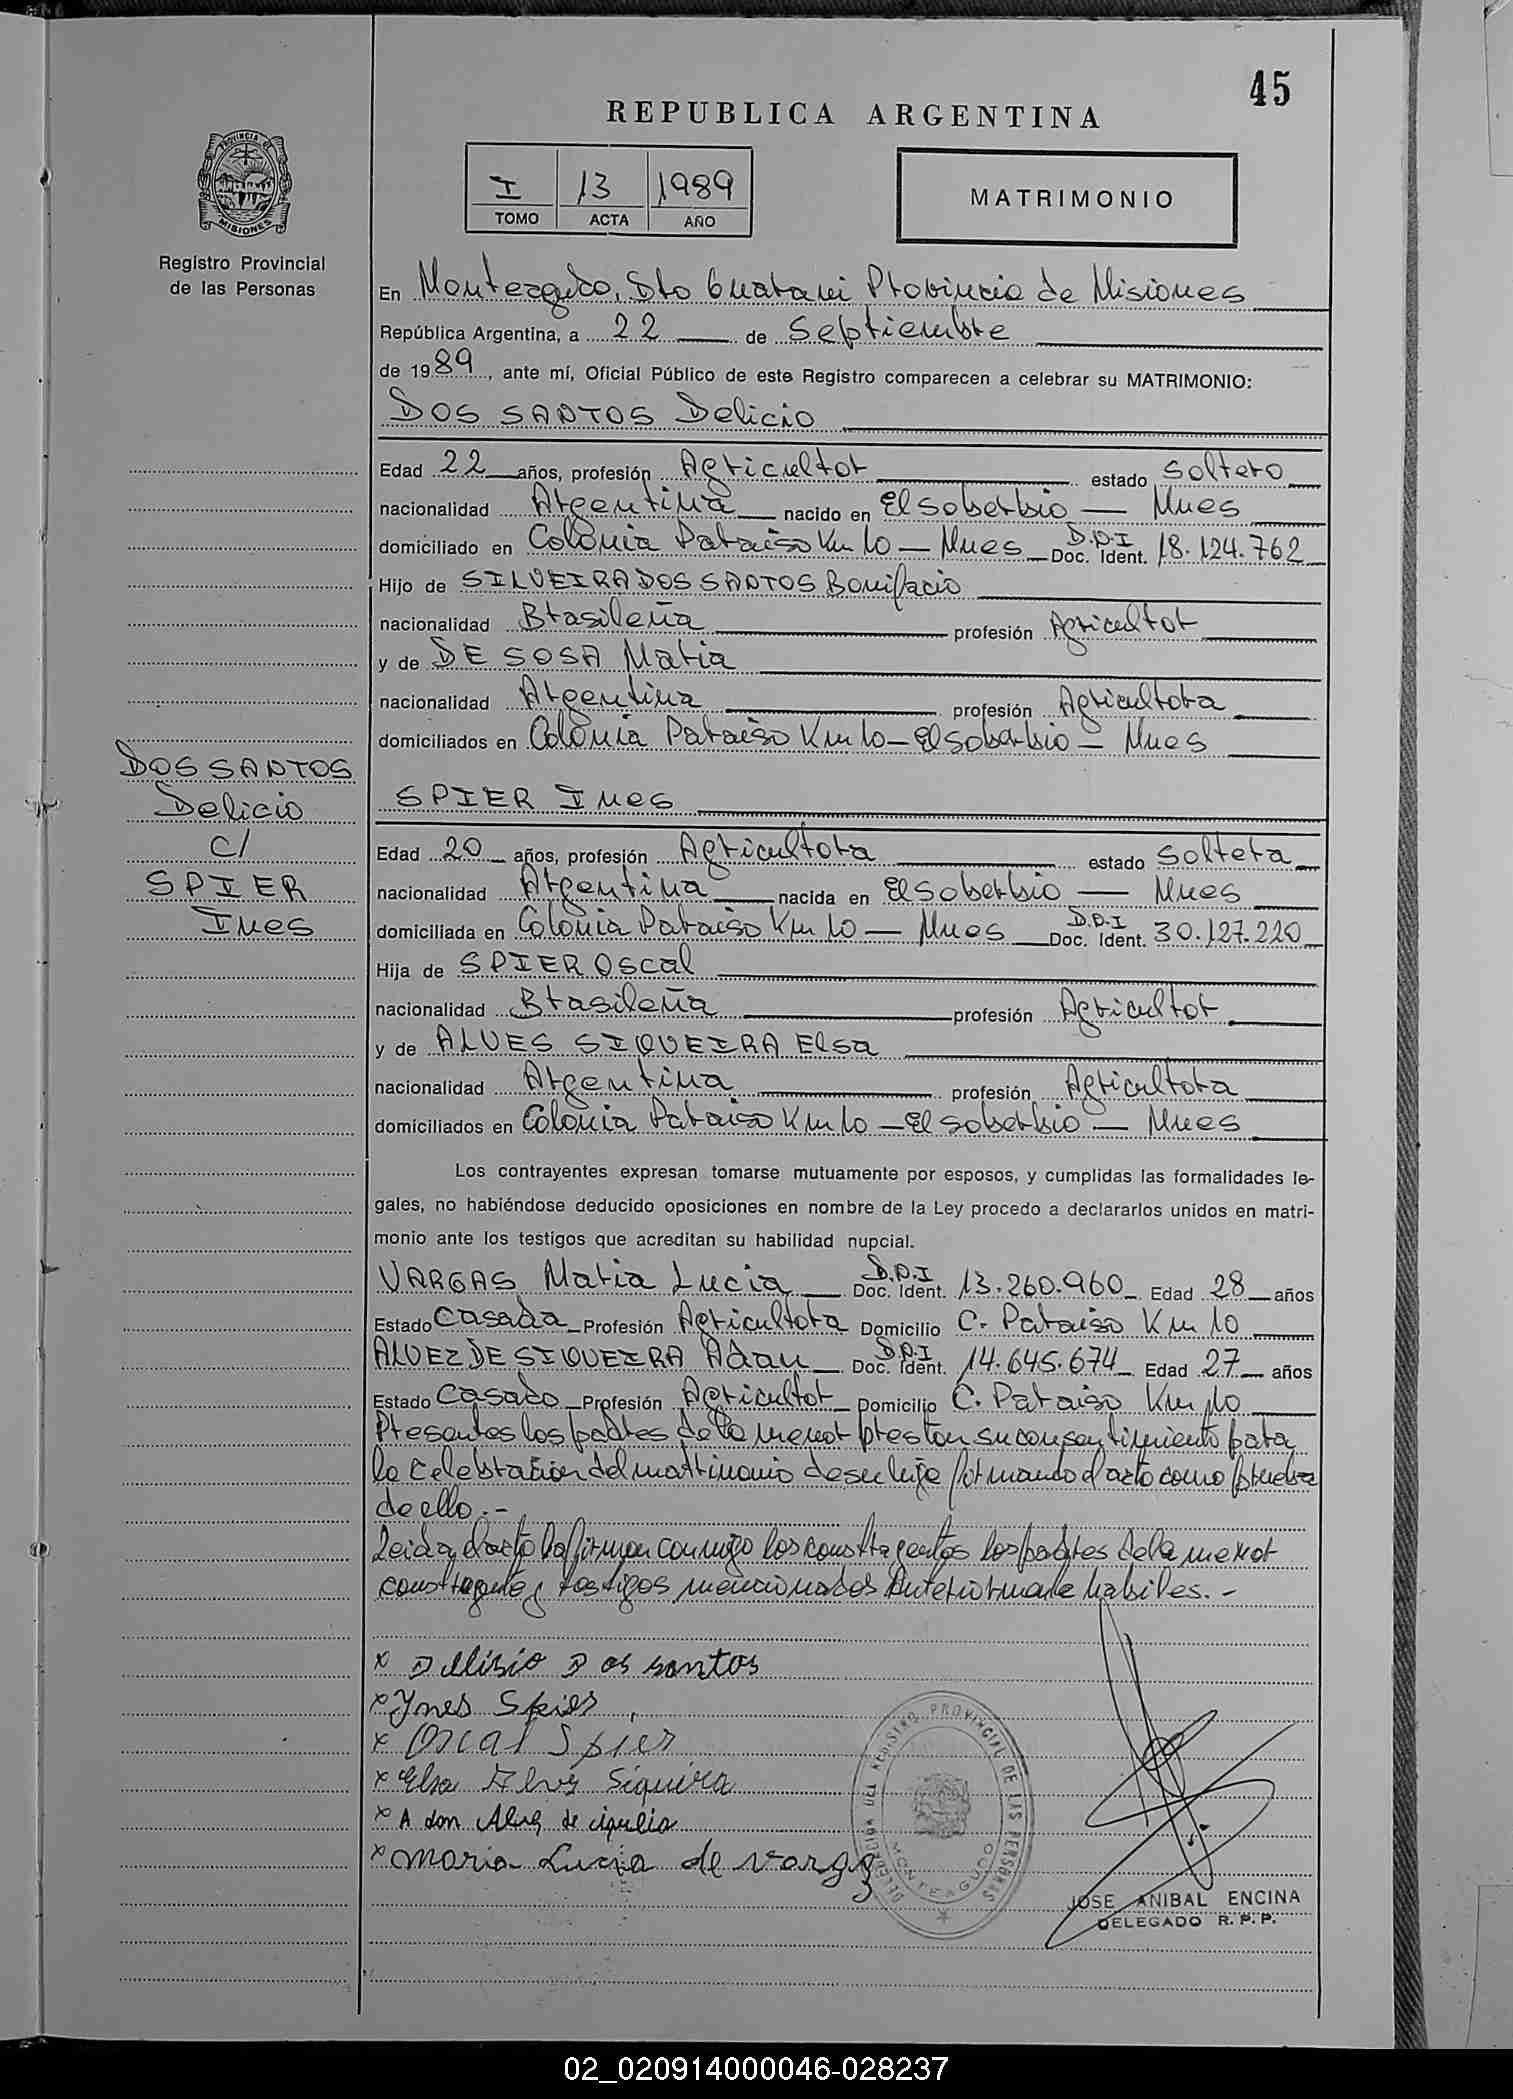 45
REPUBLICA ARGENTINA
PROVINCIA DE
MISIONES
I 13 1989
TOMO ACTA AÑO
MATRIMONIO
Registro Provincial
de las Personas
En Monteagudo, Dto Guarani Provincia de Misiones
República Argentina, a 22 de Septiembre
de 1989, ante mí, Oficial Público de este Registro comparecen a celebrar su MATRIMONIO:
DOS SANTOS Delicio
Edad 22 años, profesión Agricultor estado Soltero
nacionalidad Argentina nacido en El Soberbio — Mnes
domiciliado en Colonia Paraiso Km 10 — Mnes D.N.I Doc. Ident. 18.124.762
Hijo de SILVEIRA DOS SANTOS Bonifacio
nacionalidad Brasileña profesión Agricultor
y de DE SOSA Maria
nacionalidad Argentina profesión Agricultora
domiciliados en Colonia Paraiso Km 10 — El Soberbio — Mnes
DOS SANTOS
Delicio
C/
SPIER
Ines
SPIER Ines
Edad 20 años, profesión Agricultora estado Soltera
nacionalidad Argentina nacida en El Soberbio — Mnes
domiciliada en Colonia Paraiso Km 10 — Mnes D.N.I Doc. Ident. 30.127.220
Hija de SPIER Oscal
nacionalidad Brasileña profesión Agricultor
y de ALVES SIQUEIRA Elsa
nacionalidad Argentina profesión Agricultora
domiciliados en Colonia Paraiso Km 10 — El Soberbio — Mnes
Los contrayentes expresan tomarse mutuamente por esposos, y cumplidas las formalidades le-
gales, no habiéndose deducido oposiciones en nombre de la Ley procedo a declararlos unidos en matri-
monio ante los testigos que acreditan su habilidad nupcial.
VARGAS Maria Lucia D.N.I Doc. Ident. 13.260.960 Edad 28 años
Estado Casada Profesión Agricultora Domicilio C. Paraiso Km 10
ALVEZ DE SIQUEIRA Adan D.N.I Doc. Ident. 14.645.674 Edad 27 años
Estado Casado Profesión Agricultor Domicilio C. Paraiso Km 10
Presentes los padres de la menor prestan su consentimiento para
la Celebración del matrimonio de su hija firmando el acto como prueba
de ello.-
Leida el acto la firman conmigo los constrayentes los padres de la menor
constrayente y testigos mencionados Anteriormente habiles.-
x Dllisio Dos santos
x Ynes Spier
x Oscal Spier
x Elsa Alves Siqueira
x Adon Alves de
x maria Lucia de vargas
DELEGACION DEL REGISTRO PROVINCIAL DE LAS PERSONAS
MONTEAGUDO
JOSE ANIBAL ENCINA
DELEGADO R. P. P.
02_020914000046-028237